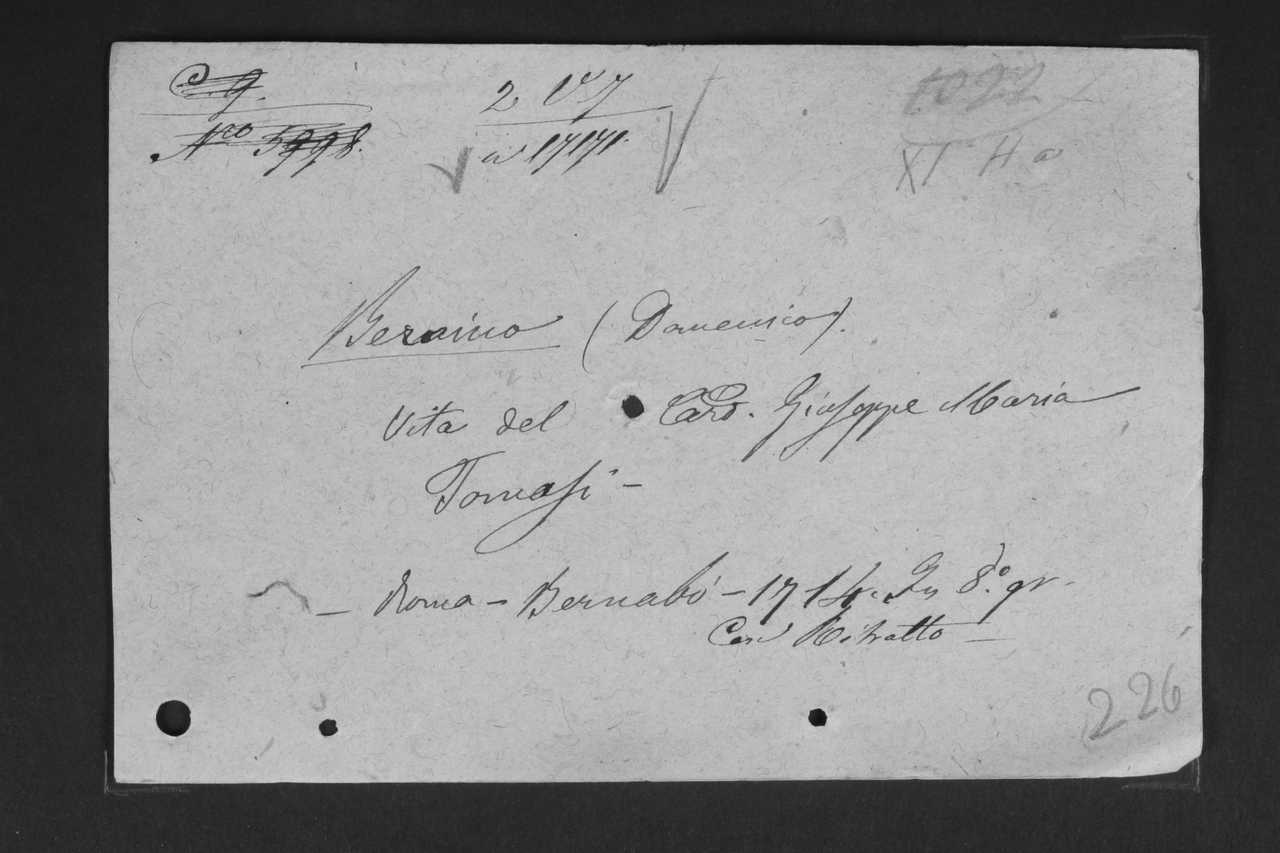 C. 9.
Nro 5998.
2 V 7
a 17171.
1022
XI H a
Beraino (Domenico).
Vita del Card. Giuseppe Maria
Tomasi -
- Roma - Bernabó - 1714. In 8.º gr.
Con Ritratto -
226